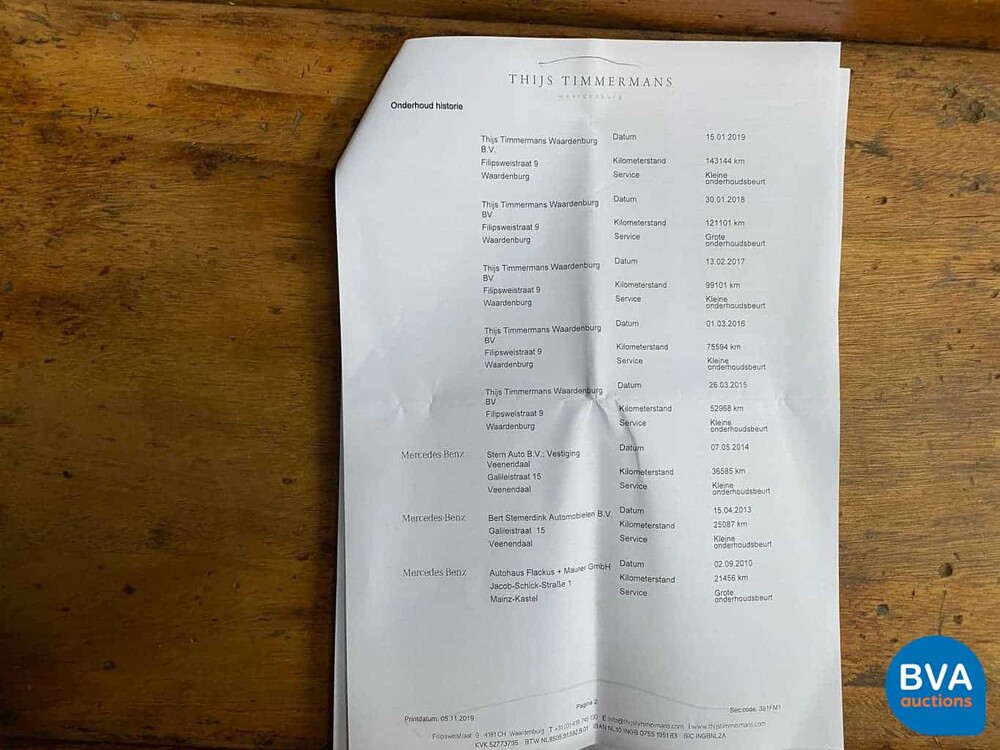 THIJS TIMMERMANS
waardenburg
Onderhoud historie
Thijs Timmermans Waardenburg Datum 15.01.2019
B.V.
Filipsweistraat 9 Kilometerstand 143144 km
Waardenburg Service Kleine
onderhoudsbeurt
Thijs Timmermans Waardenburg Datum 30.01.2018
BV
Filipsweistraat 9 Kilometerstand 121101 km
Waardenburg Service Grote
onderhoudsbeurt
Thijs Timmermans Waardenburg Datum 13.02.2017
BV
Filipsweistraat 9 Kilometerstand 99101 km
Waardenburg Service Kleine
onderhoudsbeurt
Thijs Timmermans Waardenburg Datum 01.03.2016
BV
Filipsweistraat 9 Kilometerstand 75594 km
Waardenburg Service Kleine
onderhoudsbeurt
Thijs Timmermans Waardenburg Datum 26.03.2015
BV
Filipsweistraat 9 Kilometerstand 52968 km
Waardenburg Service Kleine
onderhoudsbeurt
Mercedes Benz Stern Auto B.V.; Vestiging Datum 07.05.2014
Veenendaal
Galileistraat 15 Kilometerstand 36585 km
Veenendaal Service Kleine
onderhoudsbeurt
Mercedes Benz Bert Stemerdink Automobielen B.V. Datum 15.04.2013
Galileistraat 15 Kilometerstand 25087 km
Veenendaal Service Kleine
onderhoudsbeurt
Mercedes Benz Autohaus Flackus + Maurer GmbH Datum 02.09.2010
Jacob-Schick-Straße 1 Kilometerstand 21456 km
Mainz-Kastel Service Grote
onderhoudsbeurt
Printdatum: 05.11.2019 Pagina 2 Sec.code: 391FM1
Filipsweistraat 9 4181CH Waardenburg T +31 (0) 418 E info@thijstimmermans.com I www.thijstimmermans.com
KVK 52773795 BTW IBAN NL10 INGB 0755 1951 83 BIC INGBNL2A
BVA
auctions